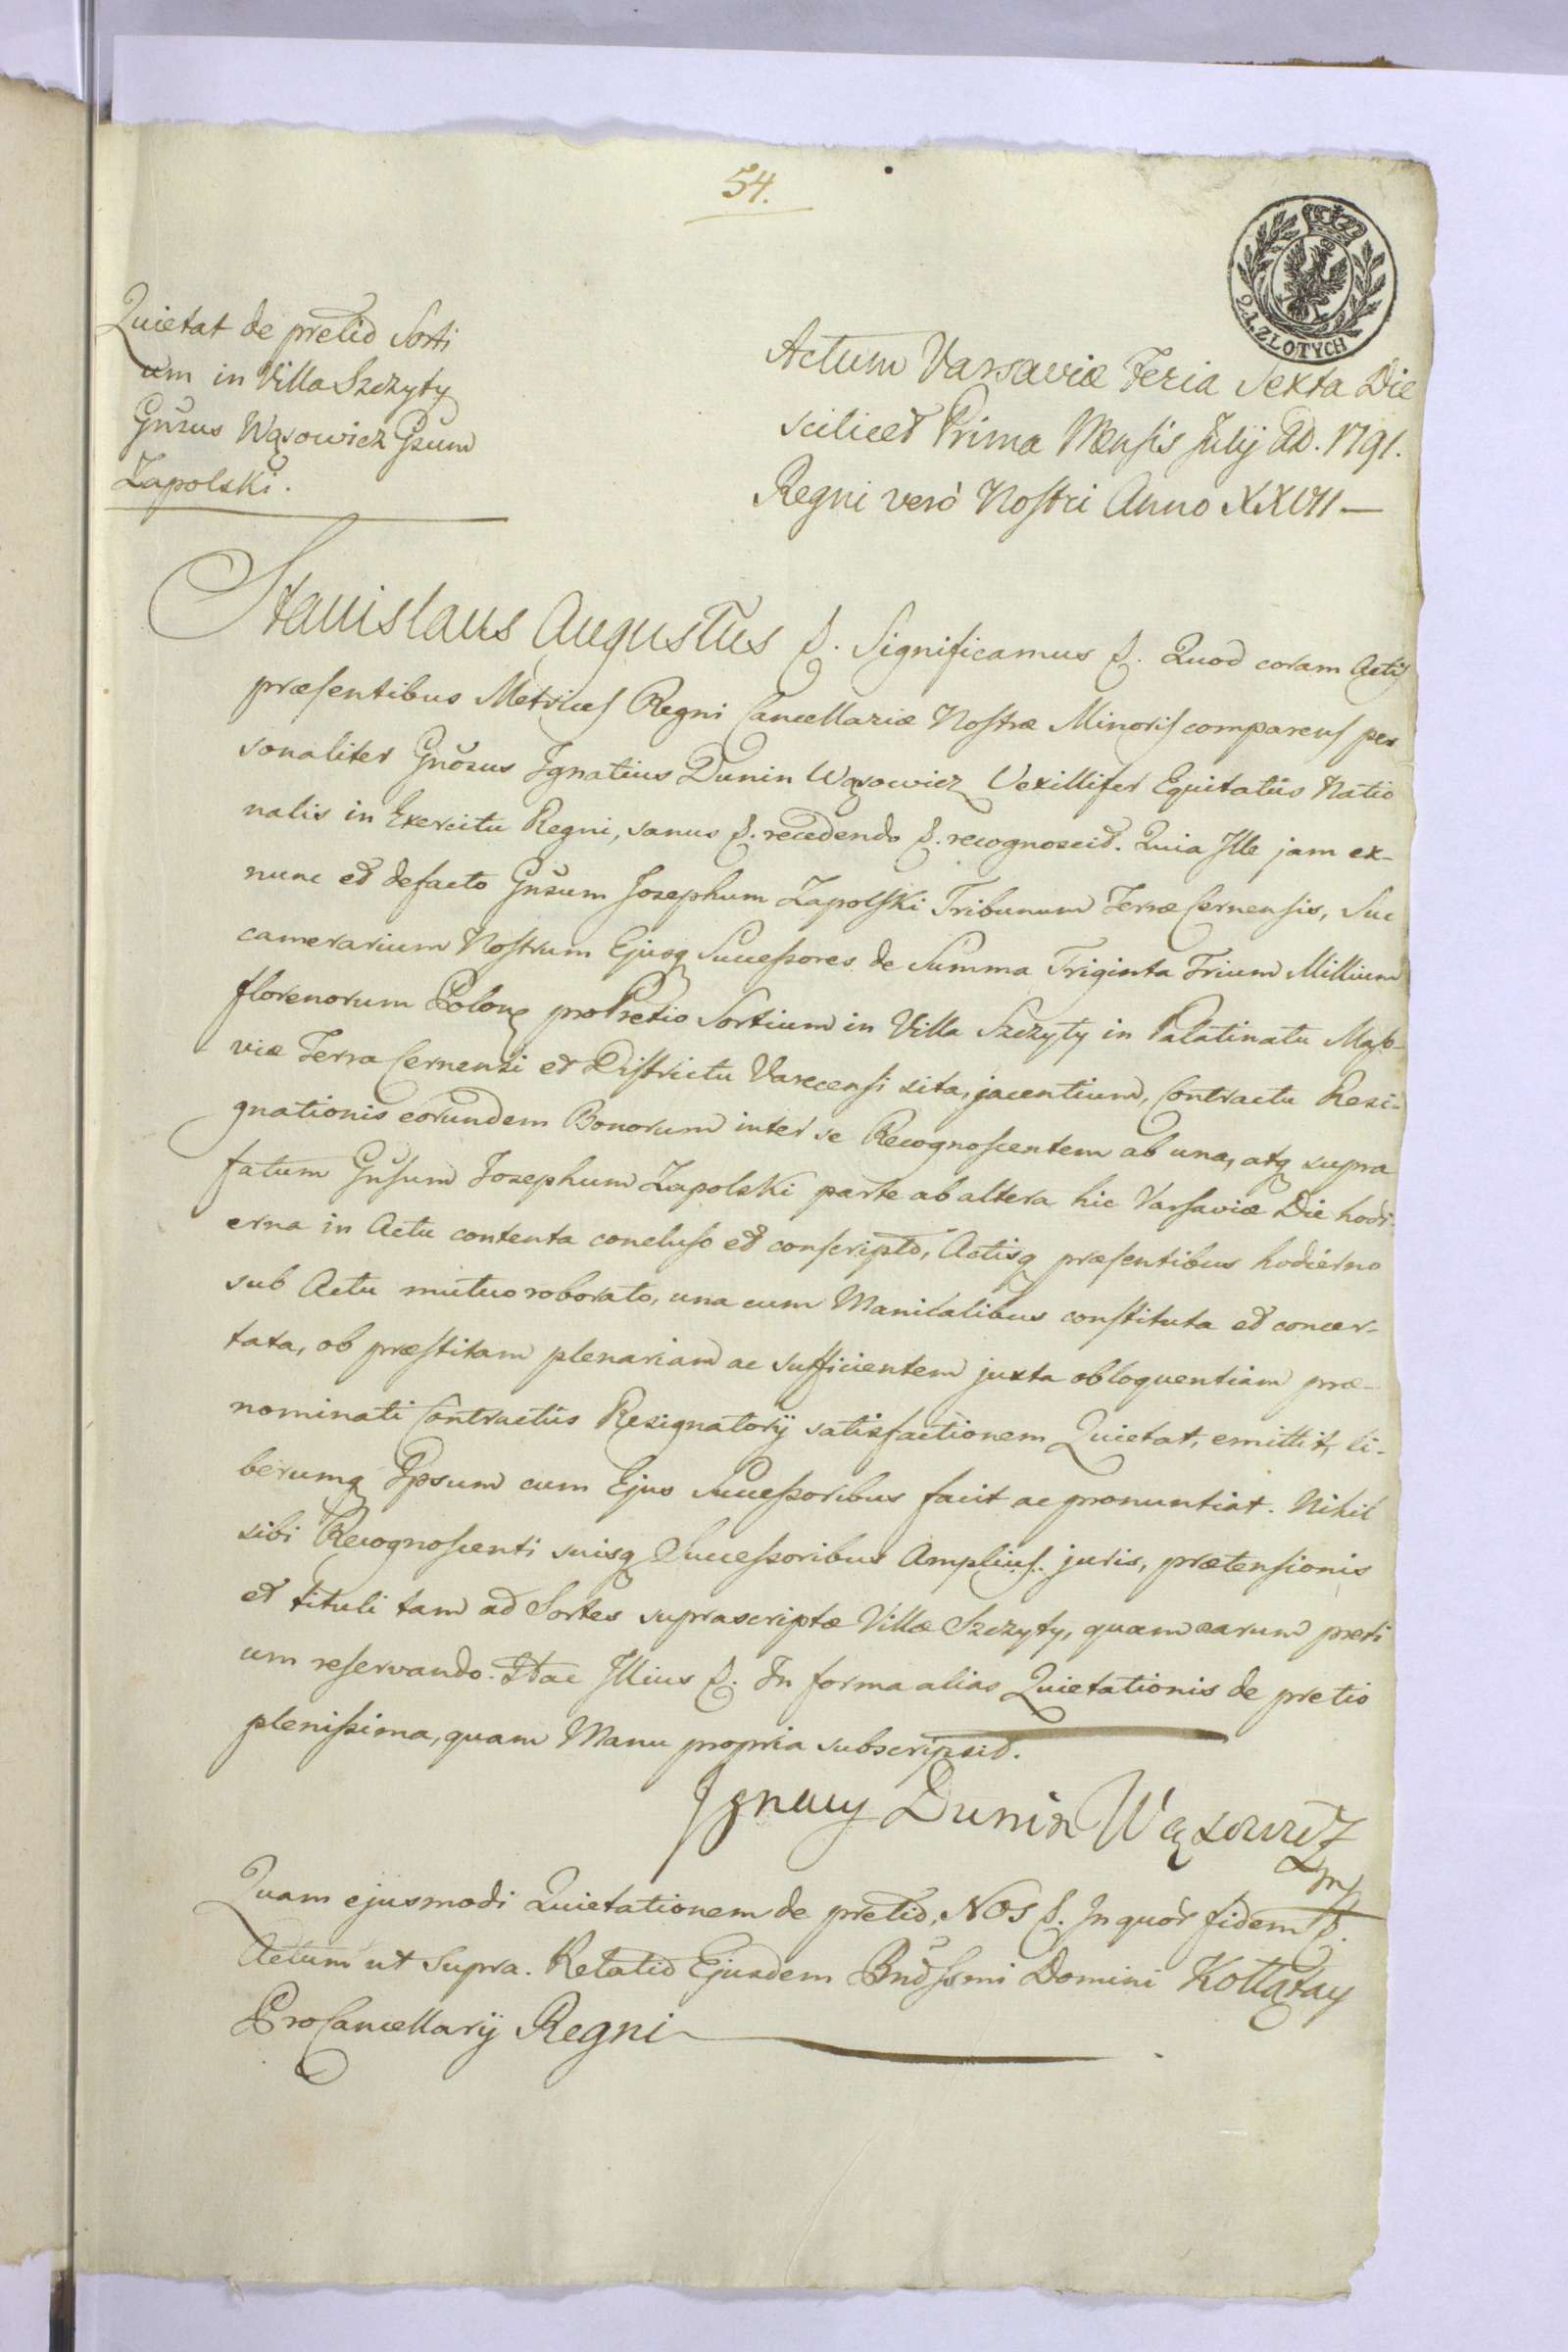 54.
2.1. ZŁOTYCH
Quietat de pretio Sorti
um in Villa Szczyty
Gnsus Wąsowicz Gsum
Zapolski.
Actum Varsaviæ Feria Sexta Die
scilicet Prima Mensis Julij AD. 1791.
Regni verò Nostri Anno XXVII—
Stanislaus Augustus &. Significamus &. Quod coram Actis
præsentibus Metrices Regni Cancellariæ Nostræ Minoris comparens per
sonaliter Gnosus Ignatius Dunin Wąsowicz Vexillifer Equitatûs Natio
nalis in Exercitu Regni, sanus &. recedendo &. recognoscit. Quia Ille jam ex-
nunc et defacto Gnsum Josephum Zapolski Tribunum Terræ Cernensis, Suc
camerarium Nostrum Ejusq Successores de Summa Triginta Trium Millium
florenorum Polonq pro Pretio Sortium in Villa Szczyty in Palatinatu Maso-
viæ Terra Cernensi et Districtu Varecensi sita, jacentium, Contractu Resi-
gnationis eorundem Bonorum inter se Recognoscentem ab una, atq supra
fatum Gnsum Josephum Zapolski parte ab altera hic Varsaviæ Die hodi-
erna in Actu contenta concluso et conscripto, Actisq præsentibus hodierno
sub Actu mutuo roborato, una cum Manualibus constituta et concer-
tata, ob præstitam plenariam ac sufficientem juxta obloquentiam præ-
nominati Contractûs Resignatorij satisfactionem Quietat, emittit, li-
berumq Ipsum cum Ejus Successoribus facit ac pronuntiat. Nihil
sibi Recognoscenti suisq Successoribus Amplius juris, prætensionis
et tituli tam ad Sortes suprascriptæ Villæ Szczyty, quam earum preti
um reservando. Hac Illius &. In forma alias Quietationis de pretio
plenissima, quam Manu propria subscripsit.
Ignacy Dunin Wąsowicz
mp
Quam ejusmodi Quietationem de pretio, NOS &. In quor fidem &.
Actum ut supra. Relatio Ejusdem Bndssmi Domini Kołłątay
ProCancellarij Regni